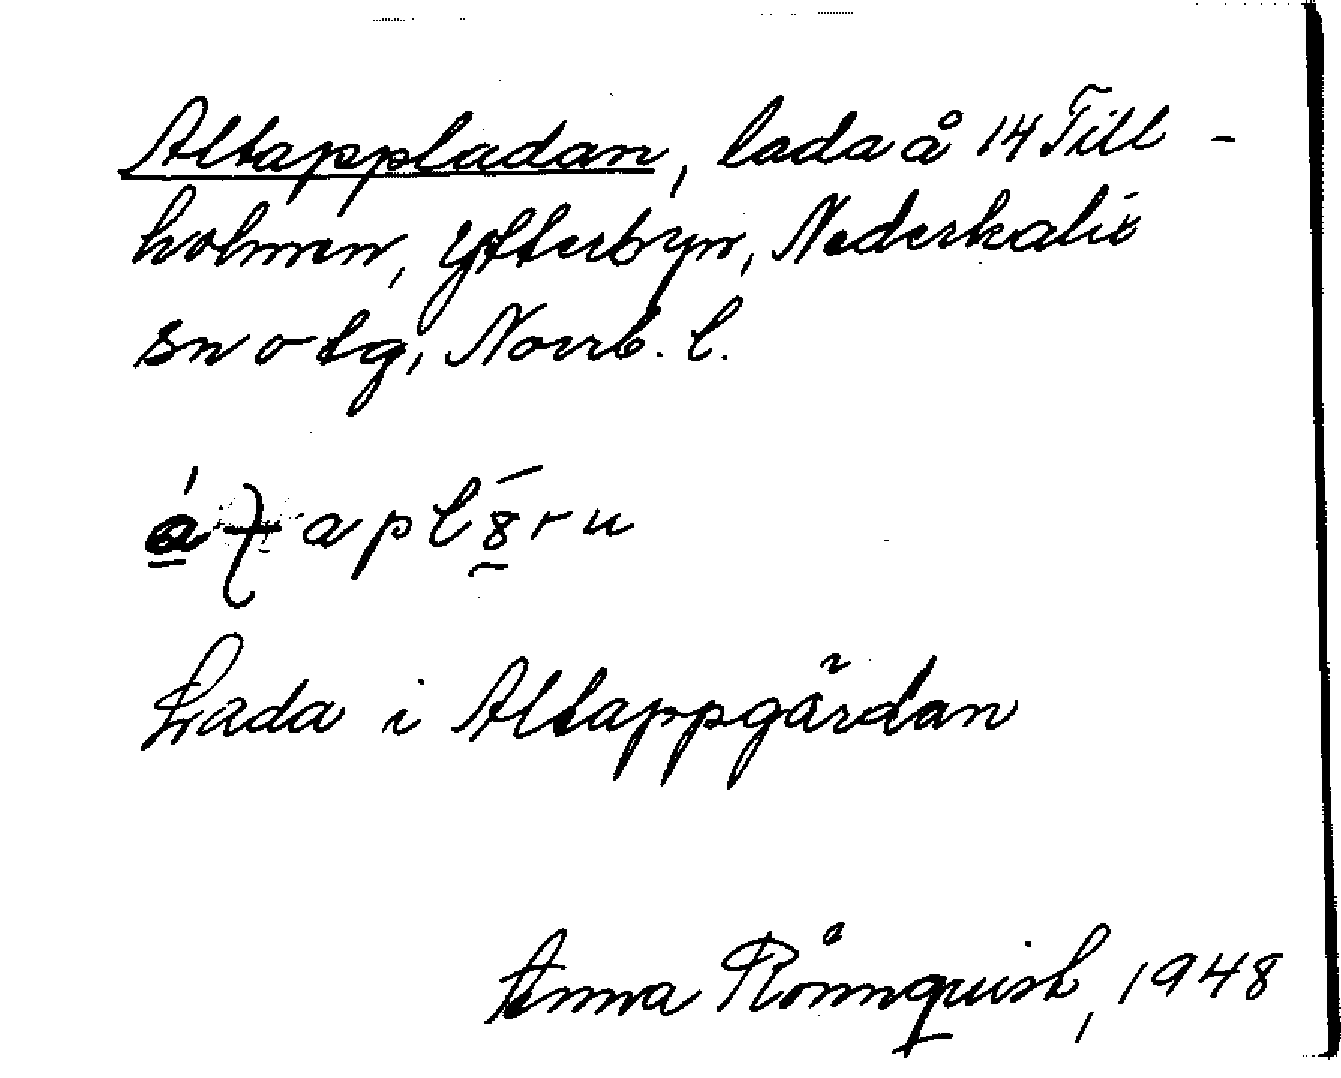 Altappladan, lada å 14 Till-
holmen, Ytterbyn, Nederkalix
sn o tg, Norrb. l.
Lada i Altappgårdan
Anna Rönnquist, 1948